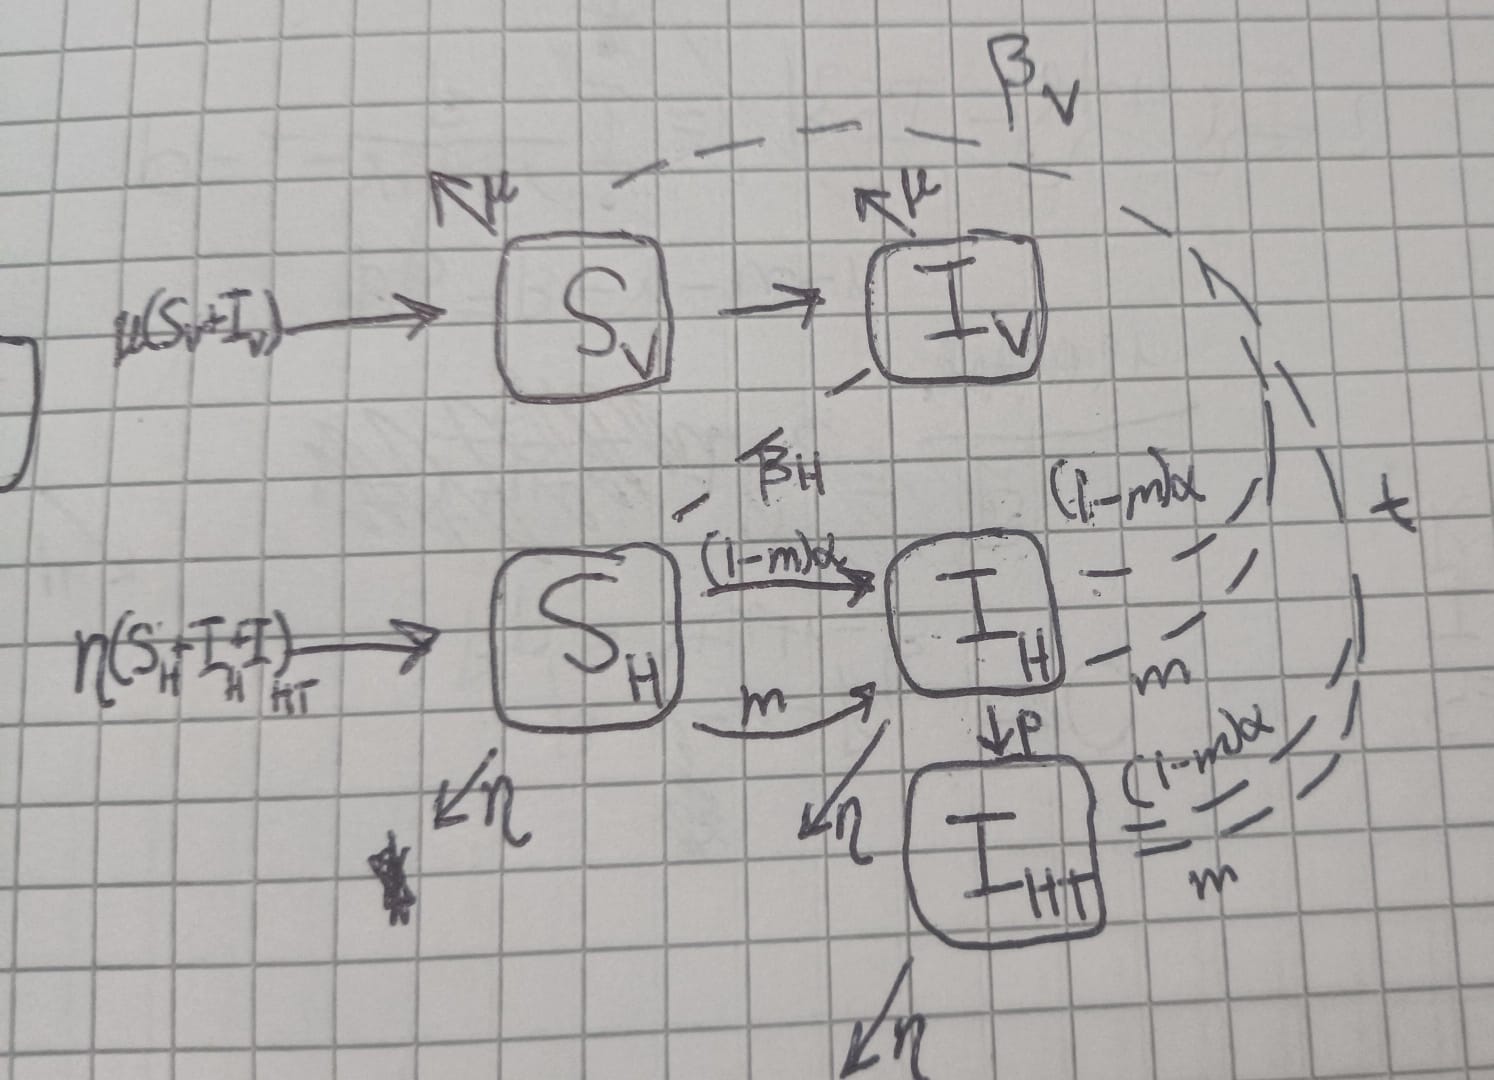 β_V
μ
μ
μ(S_V+I_V)
S_V
I_V
β_H
(1-m)α
(1-m)α
t
η(S_H+I_H+I_HT)
S_H
I_H
m
m
ρ
(1-m)α
η
η
I_HT
m
η